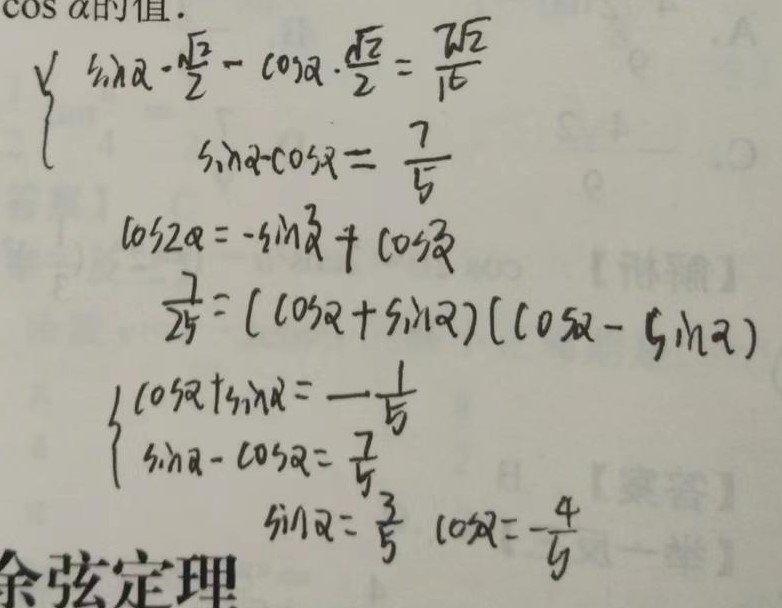 cos α的值.
sinα·√2/2 - cosα·√2/2 = 7√2/10
sinα-cosα = 7/5
cos2α = -sin²α + cos²α
7/25 = (cosα+sinα)(cosα-sinα)
cosα+sinα = -1/5
sinα-cosα = 7/5
sinα = 3/5 cosα = -4/5
余弦定理